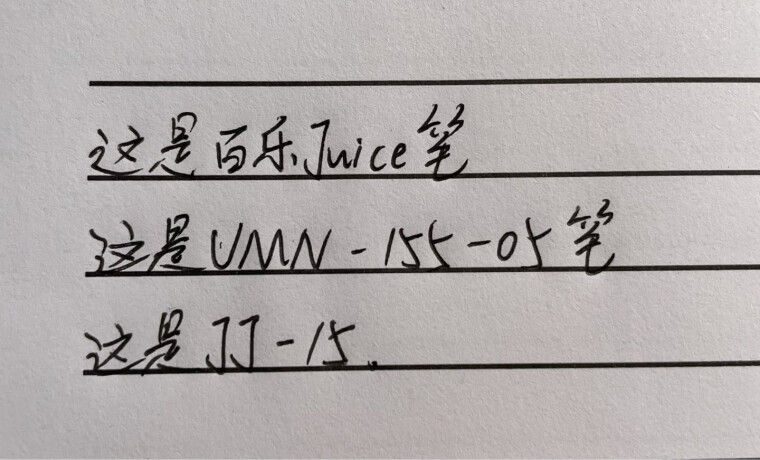 这是百乐Juice笔
这是UMN-155-05笔
这是JJ-15.